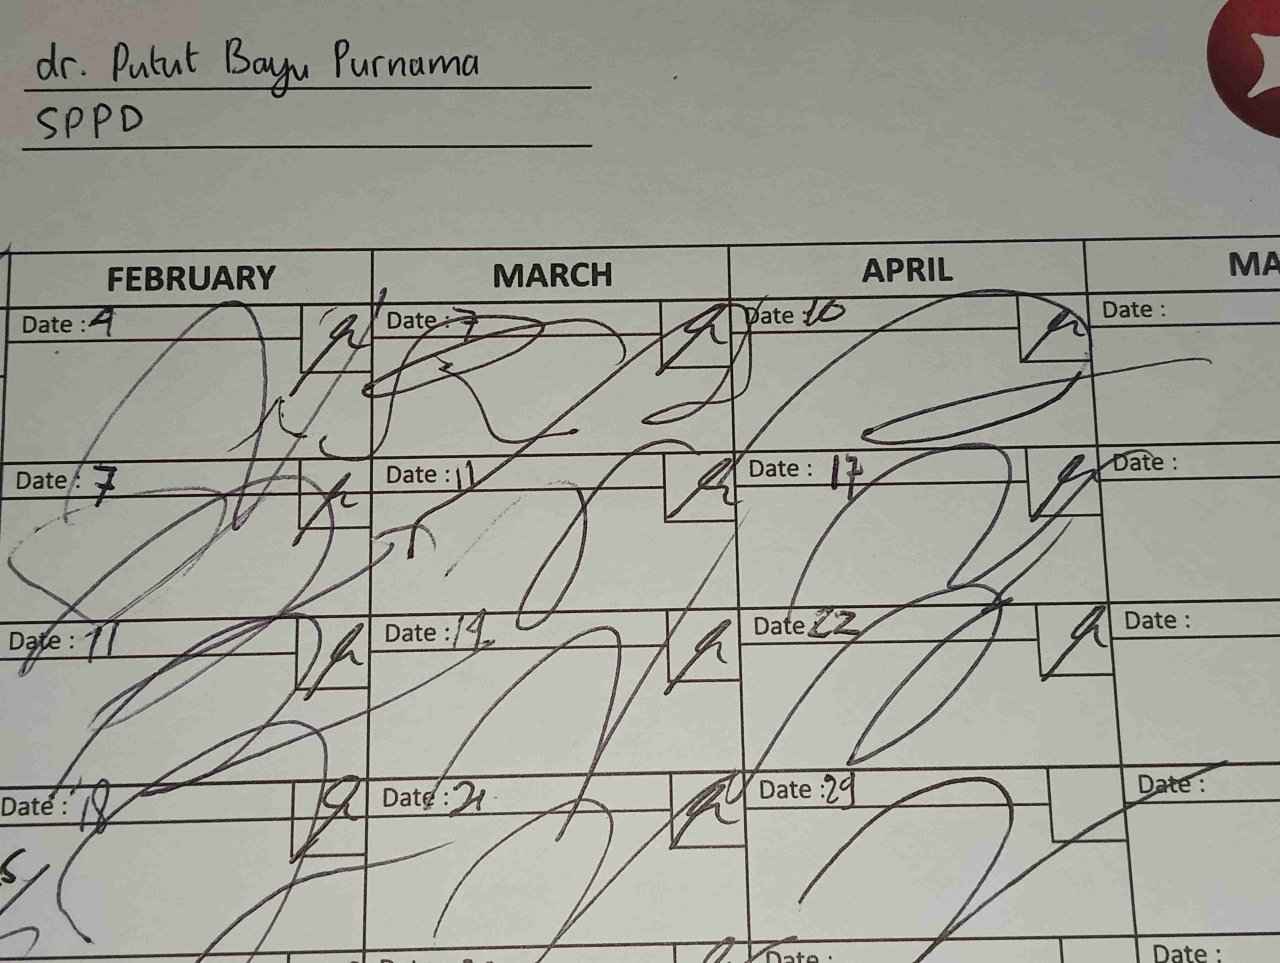 dr. Putut Bayu Purnama
SPPD
FEBRUARY MARCH APRIL MA
Date : 4 Date : 7 Date : 10 Date :
Date : 7 Date : 11 Date : 17 Date :
Date : 11 Date : 14 Date : 22 Date :
Date : 18 Date : 21 Date : 29 Date :
Date : Date :